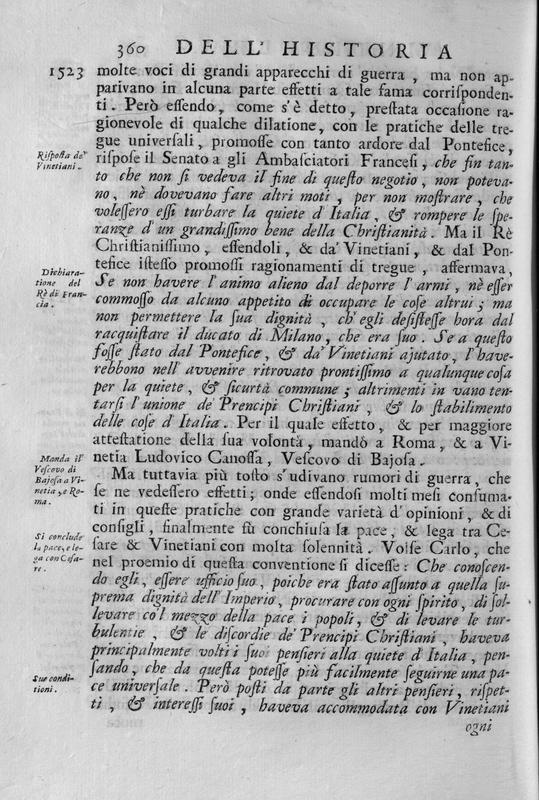 360 DELL' HISTORIA
1523 molte voci di grandi apparecchi di guerra, ma non ap-
parivano in alcuna parte effetti a tale fama corriſponden-
ti. Però eſſendo, come s'è detto, preſtata occaſione ra-
gionevole di qualche dilatione, con le pratiche delle tre-
gue univerſali, promoſſe con tanto ardore dal Pontefice,
Riſpoſta de'
Vinetiani.
riſpoſe il Senato a gli Ambaſciatori Franceſi, che fin tan-
to che non ſi vedeva il fine di queſto negotio, non poteva-
no, nè dovevano fare altri moti, per non moſtrare, che
voleſſero eſſi turbare la quiete d'Italia, & rompere le ſpe-
ranze d'un grandiſſimo bene della Chriſtianità. Ma il Rè
Chriſtianiſſimo, eſſendoli, & da' Vinetiani, & dal Pon-
Dichiara-
tione del
Rè di Fran-
cia.
tefice iſteſſo promoſſi ragionamenti di tregue, affermava,
Se non havere l'animo alieno dal deporre l'armi, nè eſſer
commoſſo da alcuno appetito di occupare le coſe altrui; ma
non permettere la ſua dignità, ch'egli deſiſteſſe hora dal
racquiſtare il ducato di Milano, che era ſuo. Se a queſto
foſſe ſtato dal Pontefice, & da' Vinetiani ajutato, l'have-
rebbono nell' avvenire ritrovato prontiſſimo a qualunque coſa
per la quiete, & ſicurtà commune; altrimenti in vano ten-
tarſi l'unione de' Prencipi Chriſtiani, & lo ſtabilimento
delle coſe d'Italia. Per il quale effetto, & per maggiore
atteſtatione della ſua volontà, mandò a Roma, & a Vi-
Manda il
Veſcovo di
Bajoſa a Vi-
netia, e Ro-
ma.
netia Ludovico Canoſſa, Veſcovo di Bajoſa.
Ma tuttavia più toſto s'udivano rumori di guerra, che
ſe ne vedeſſero effetti; onde eſſendoſi molti meſi conſuma-
ti in queſte pratiche con grande varietà d'opinioni, & di
conſigli, finalmente fù conchiuſa la pace, & lega tra Ce-
Si conclude
la pace, e le-
ga con Ceſa-
re.
ſare & Vinetiani con molta ſolennità. Volſe Carlo, che
nel proemio di queſta conventione ſi diceſſe: Che conoſcen-
do egli, eſſere ufficio ſuo, poiche era ſtato aſſunto a quella ſu-
prema dignità dell'Imperio, procurare con ogni ſpirito, di ſol-
levare co'l mezzo della pace i popoli, & di levare le tur-
bulentie, & le diſcordie de' Prencipi Chriſtiani, haveva
principalmente volti i ſuoi penſieri alla quiete d'Italia, pen-
ſando, che da queſta poteſſe più facilmente ſeguirne una pa-
Sue condi-
tioni.
ce univerſale. Però poſti da parte gli altri penſieri, riſpet-
ti, & intereſſi ſuoi, haveva accommodata con Vinetiani
ogni